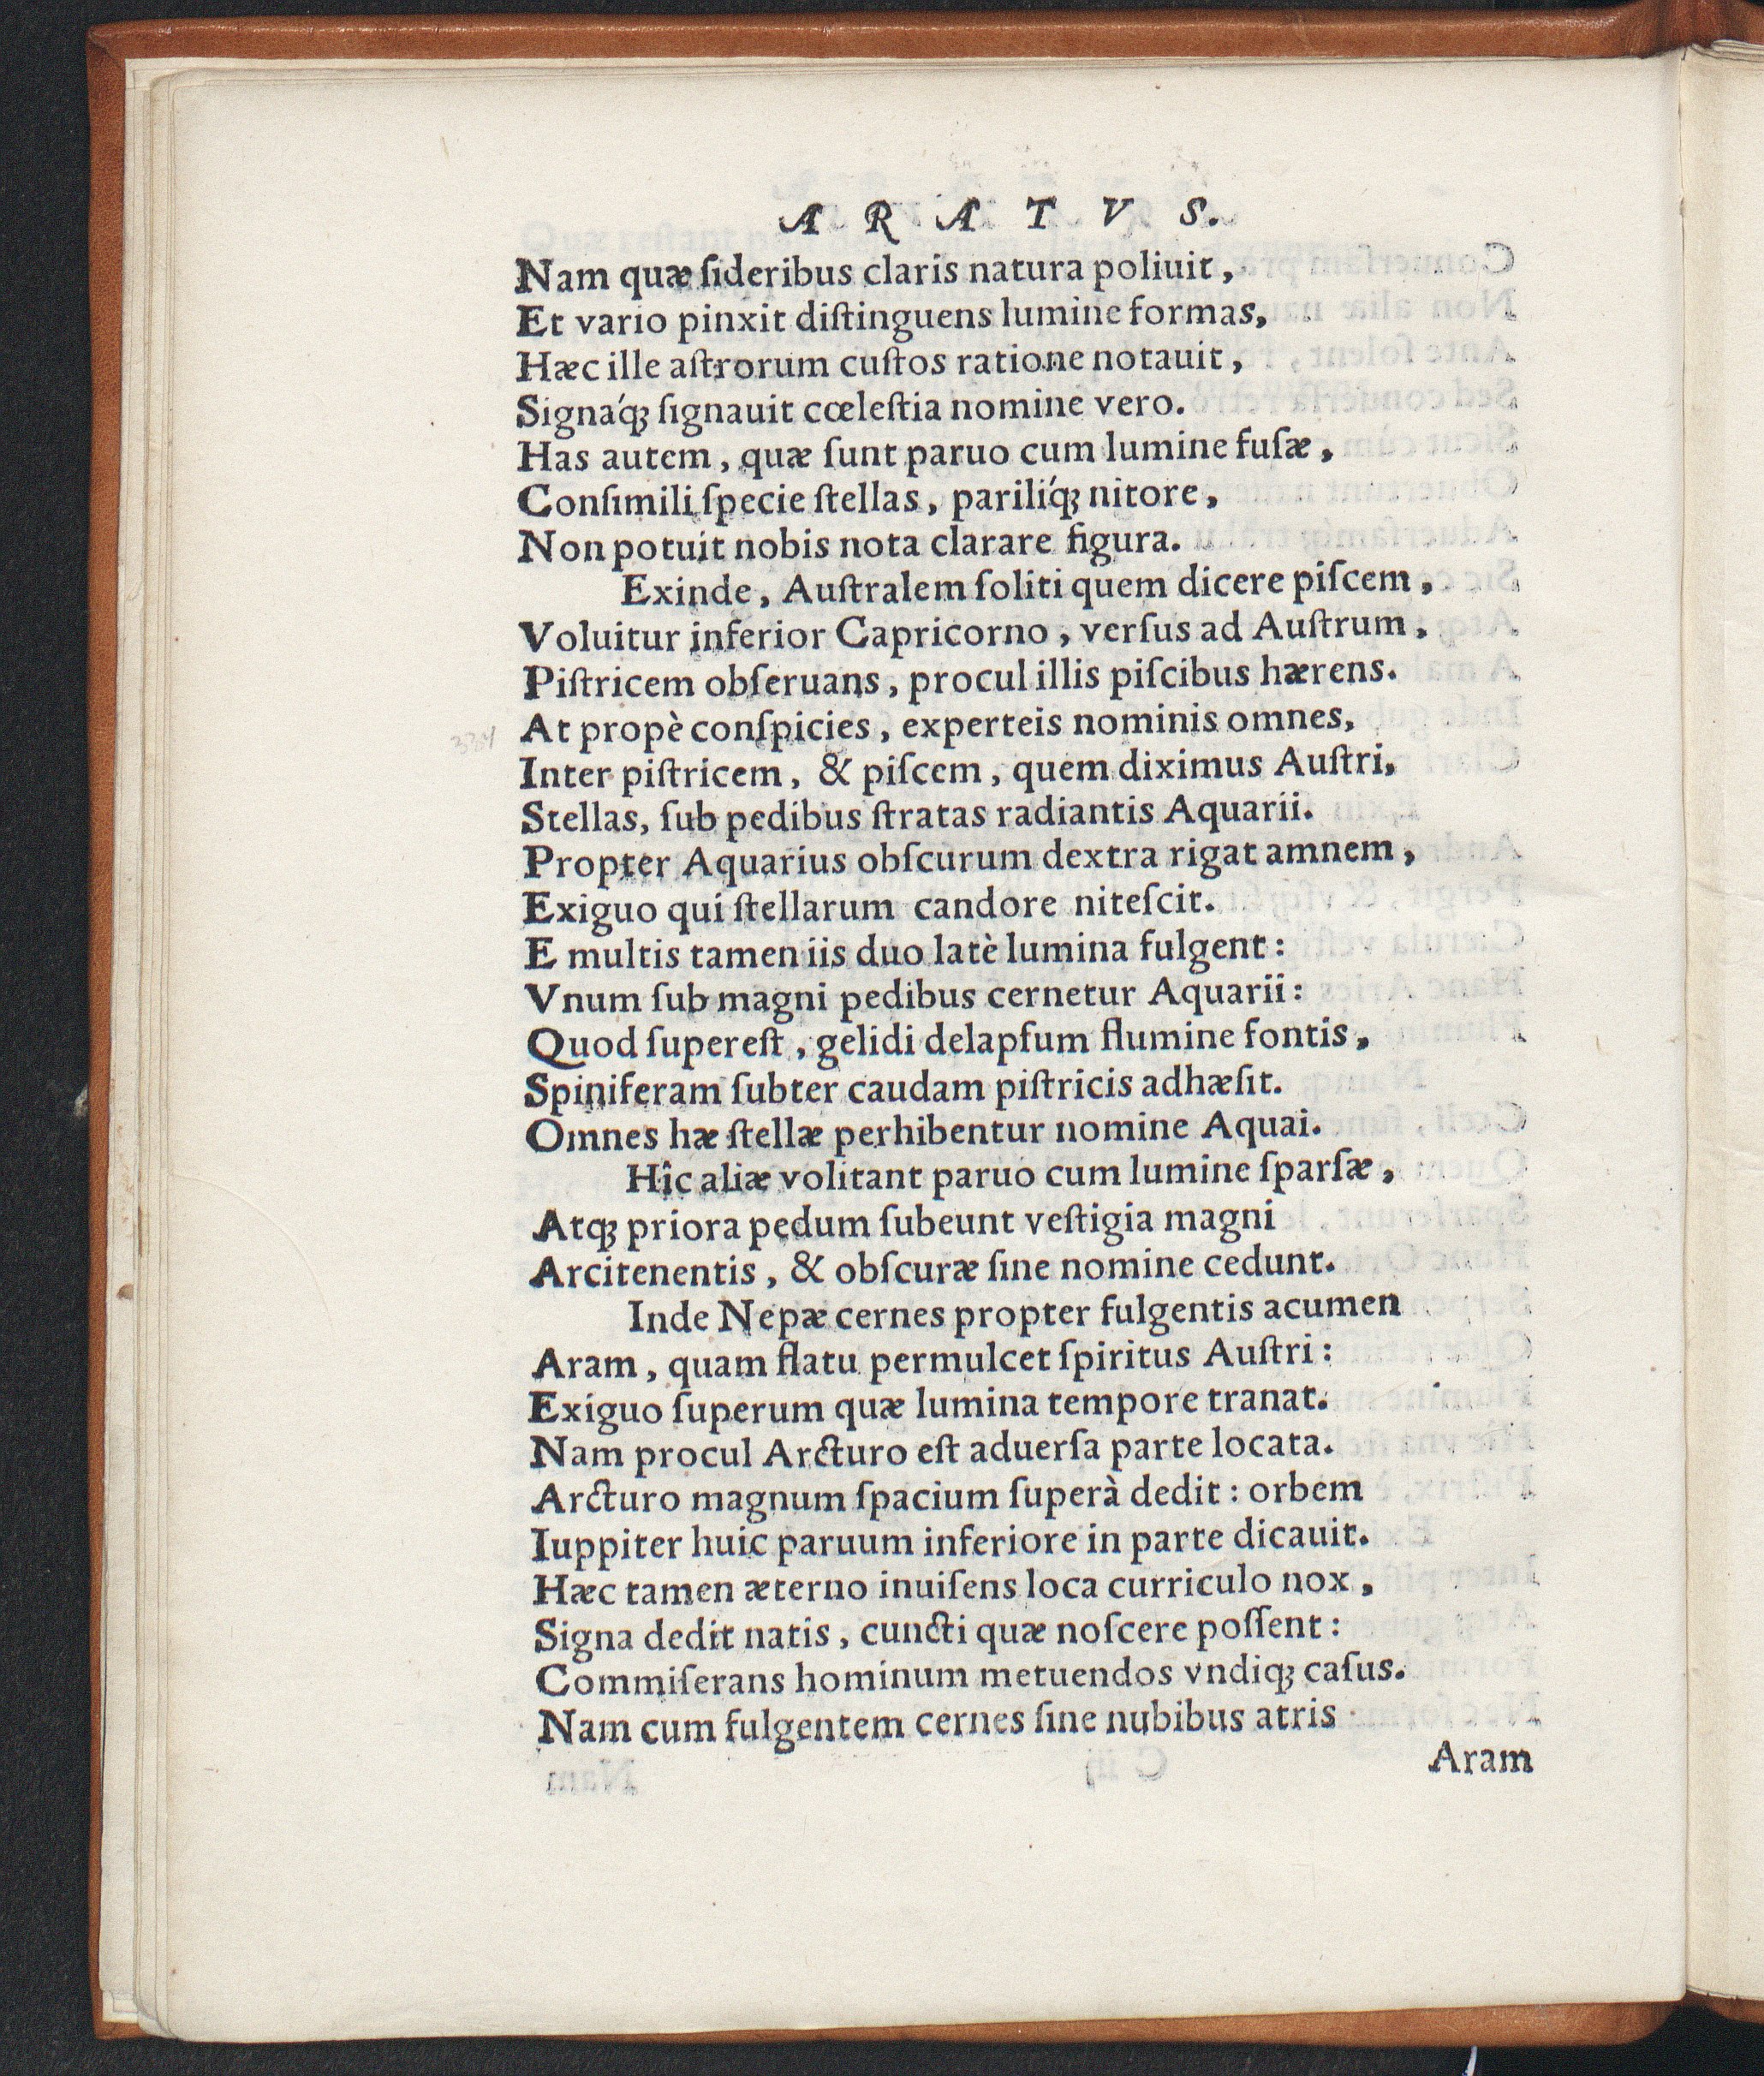 A R A T V S.
Nam quæ ſideribus claris natura poliuit,
Et vario pinxit diſtinguens lumine formas,
Hæc ille aſtrorum cuſtos ratione notauit,
Signáq; ſignauit cœleſtia nomine vero.
Has autem, quæ ſunt paruo cum lumine fuſæ,
Conſimili ſpecie ſtellas, parilíq; nitore,
Non potuit nobis nota clarare figura.
Exinde, Auſtralem ſoliti quem dicere piſcem,
Voluitur inferior Capricorno, verſus ad Auſtrum,
Piſtricem obſeruans, procul illis piſcibus hærens.
At propè conſpicies, experteis nominis omnes,
Inter piſtricem, & piſcem, quem diximus Auſtri,
Stellas, ſub pedibus ſtratas radiantis Aquarii.
Propter Aquarius obſcurum dextra rigat amnem,
Exiguo qui ſtellarum candore niteſcit.
E multis tamen iis duo latè lumina fulgent:
Vnum ſub magni pedibus cernetur Aquarii:
Quod ſupereſt, gelidi delapſum flumine fontis,
Spiniferam ſubter caudam piſtricis adhæſit.
Omnes hæ ſtellæ perhibentur nomine Aquai.
Hîc aliæ volitant paruo cum lumine ſparſæ,
Atq; priora pedum ſubeunt veſtigia magni
Arcitenentis, & obſcuræ ſine nomine cedunt.
Inde Nepæ cernes propter fulgentis acumen
Aram, quam flatu permulcet ſpiritus Auſtri:
Exiguo ſuperum quæ lumina tempore tranat.
Nam procul Arcturo eſt aduerſa parte locata.
Arcturo magnum ſpacium ſuperà dedit: orbem
Iuppiter huic paruum inferiore in parte dicauit.
Hæc tamen æterno inuiſens loca curriculo nox,
Signa dedit natis, cuncti quæ noſcere poſſent:
Commiſerans hominum metuendos vndiq; caſus.
Nam cum fulgentem cernes ſine nubibus atris
Aram